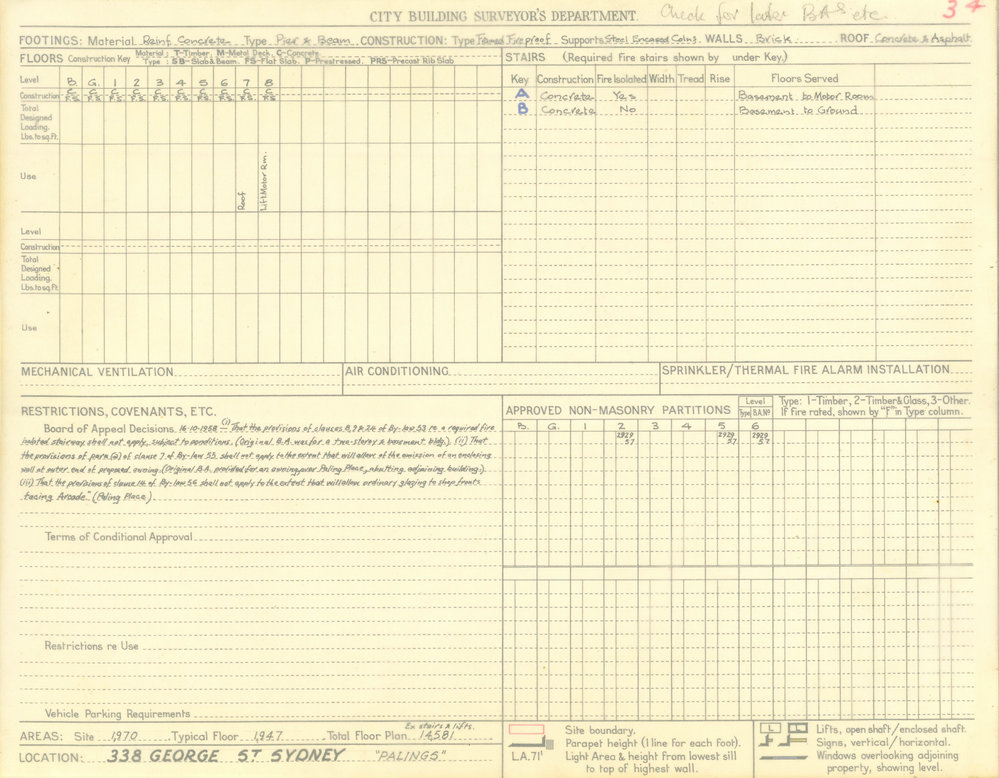 CITY BUILDING SURVEYOR'S DEPARTMENT. Check for later B.A.s etc. 34
FOOTINGS: Material Reinf Concrete Type Pier & Beam CONSTRUCTION: Type Framed Fireproof Supports Steel Encased Colns. WALLS Brick ROOF Concrete & Asphalt.
FLOORS Construction Key Material: T-Timber, M-Metal Deck, C-Concrete.
Type: SB-Slab & Beam. FS-Flat Slab. P-Prestressed. PRS-Precast Rib Slab
STAIRS (Required fire stairs shown by under Key.)
Level B. G. 1 2 3 4 5 6 7 8
Construction C C C C C C C C C C
F.S. F.S. F.S. F.S. F.S. F.S. F.S. F.S. F.S. F.S.
Total Designed Loading. Lbs.to sq.ft.
Use Roof Lift Motor Rm.
Level
Construction
Total Designed Loading. Lbs.to sq.ft.
Use
Key Construction Fire Isolated Width Tread Rise Floors Served
A Concrete Yes Basement to Motor Room
B Concrete No Basement to Ground
MECHANICAL VENTILATION. AIR CONDITIONING. SPRINKLER/THERMAL FIRE ALARM INSTALLATION.
RESTRICTIONS, COVENANTS, ETC.
Board of Appeal Decisions. 16-10-1958 — (i) That the provisions of clauses 8, 9 & 24 of By-law 53 re. a required fire
isolated stairway, shall not apply, subject to conditions. (Original B.A. was for a two-storey & basement bldg.). (ii) That
the provisions of para.(a) of clause 7 of By-law 55. shall not apply to the extent that will allow of the omission of an enclosing
wall at outer end of proposed awning. (Original B.A. provided for an awning over Paling Place, abutting adjoining building.).
(iii) That the provisions of clause 14 of By-law 56 shall not apply to the extent that will allow ordinary glazing to shop fronts
facing Arcade." (Paling Place)
Terms of Conditional Approval
Restrictions re Use
Vehicle Parking Requirements
APPROVED NON-MASONRY PARTITIONS Level Type B.A.No Type: 1-Timber, 2-Timber & Glass, 3-Other.
If fire rated, shown by "F" in Type column.
B. G. 1 2 3 4 5 6
2929 2929 2929
57 57 57
AREAS: Site 1,970 Typical Floor 1,947 Total Floor Plan Ex stairs & lifts. 14,581
LOCATION: 338 GEORGE ST SYDNEY "PALINGS"
Site boundary.
Parapet height (1 line for each foot).
L.A.71' Light Area & height from lowest sill
to top of highest wall.
L L Lifts, open shaft/enclosed shaft.
Signs, vertical/horizontal.
Windows overlooking adjoining
property, showing level.